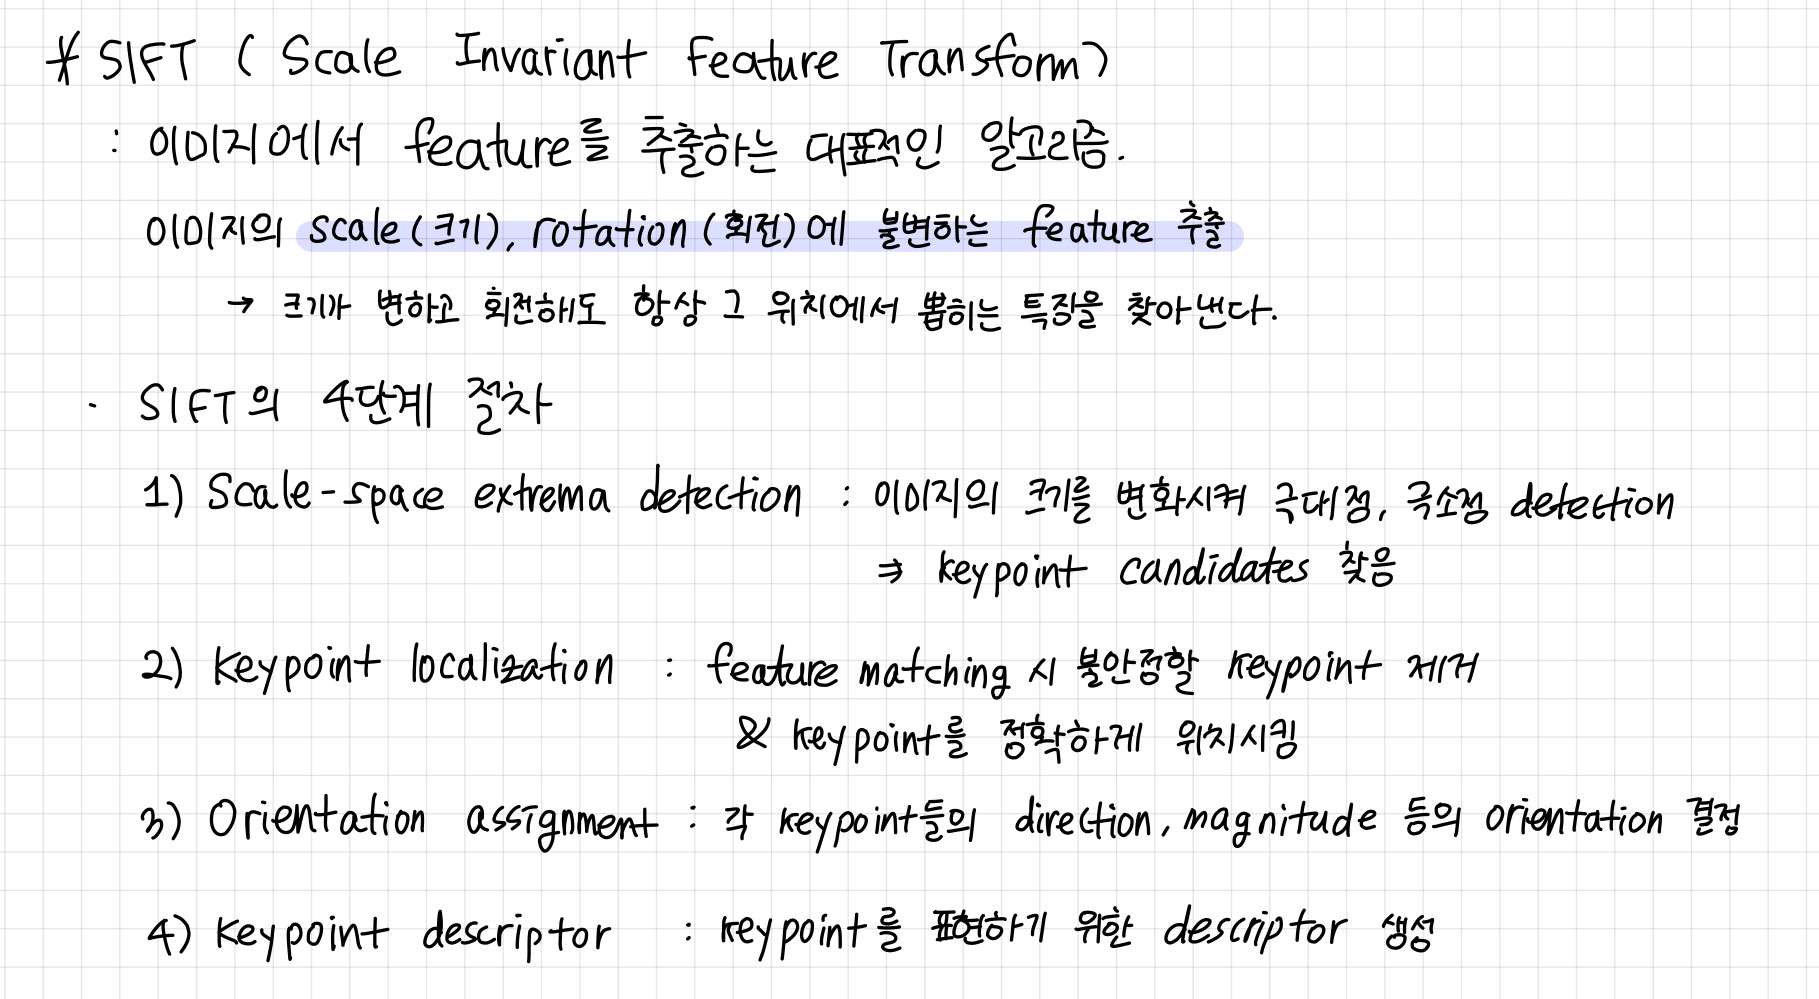 * SIFT ( Scale Invariant Feature Transform )
: 이미지에서 feature를 추출하는 대표적인 알고리즘.
이미지의 scale(크기), rotation(회전)에 불변하는 feature 추출
→ 크기가 변하고 회전해도 항상 그 위치에서 뽑히는 특징을 찾아낸다.
· SIFT의 4단계 절차
1) Scale-space extrema detection : 이미지의 크기를 변화시켜 극대점, 극소점 detection
⇒ keypoint candidates 찾음
2) keypoint localization : feature matching 시 불안정할 keypoint 제거
& keypoint를 정확하게 위치시킴
3) Orientation assignment : 각 keypoint들의 direction, magnitude 등의 orientation 결정
4) keypoint descriptor : keypoint를 표현하기 위한 descriptor 생성